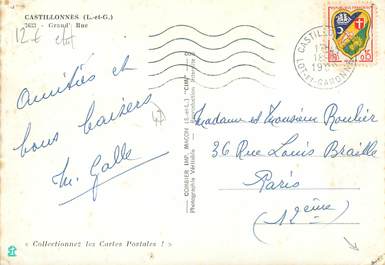 CASTILLONNES (L.-et-G.)
7633 - Grand' Rue
12 €
Amitiés et
bons baisers
M. Galle
« Collectionnez les Cartes Postales ! »
COMBIER IMP. MACON (S.-et-L.) "CIM"
Photographie Véritable - Reproduction Interdite
CASTILLO
18
LOT-ET-GARONNE
Madame et Monsieur Roulier
36 Rue Louis Braille
Paris
(12ème)